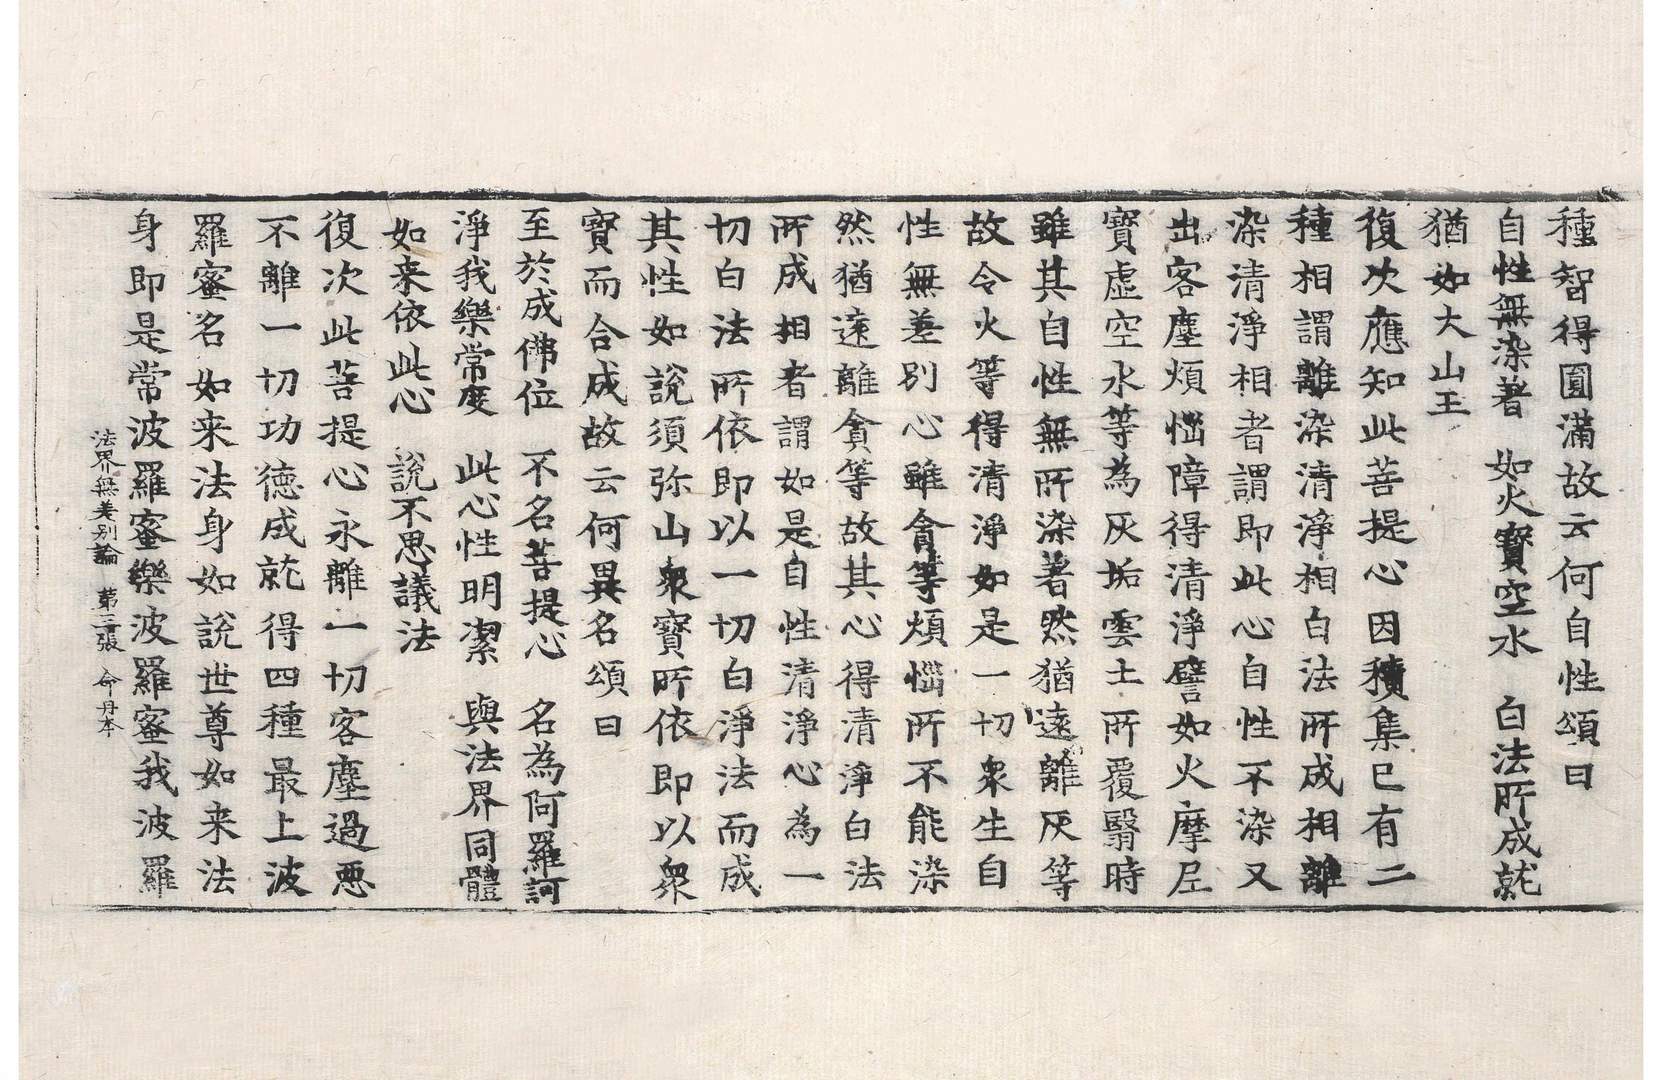 種智得圓滿故云何自性頌曰
自性無染著　如火寶空水　白法所成就
猶如大山王
復次應知此菩提心因積集已有二
種相謂離染清淨相白法所成相離
染清淨相者謂即此心自性不染又
出客塵煩惱障得清淨譬如火摩尼
寶虛空水等為灰垢雲土所覆翳時
雖其自性無所染著然猶遠離灰等
故令火等得清淨如是一切衆生自
性無差別心雖貪等煩惱所不能染
然猶遠離貪等故其心得清淨白法
所成相者謂如是自性清淨心為一
切白法所依即以一切白淨法而成
其性如說須弥山衆寶所依即以衆
寶而合成故云何異名頌曰
至於成佛位　不名菩提心　名為阿羅訶
淨我樂常度　此心性明潔　與法界同體
如来依此心　說不思議法
復次此菩提心永離一切客塵過惡
不離一切功德成就得四種最上波
羅蜜名如来法身如說世尊如来法
身即是常波羅蜜樂波羅蜜我波羅
法界無差別論　第三張　命丹本